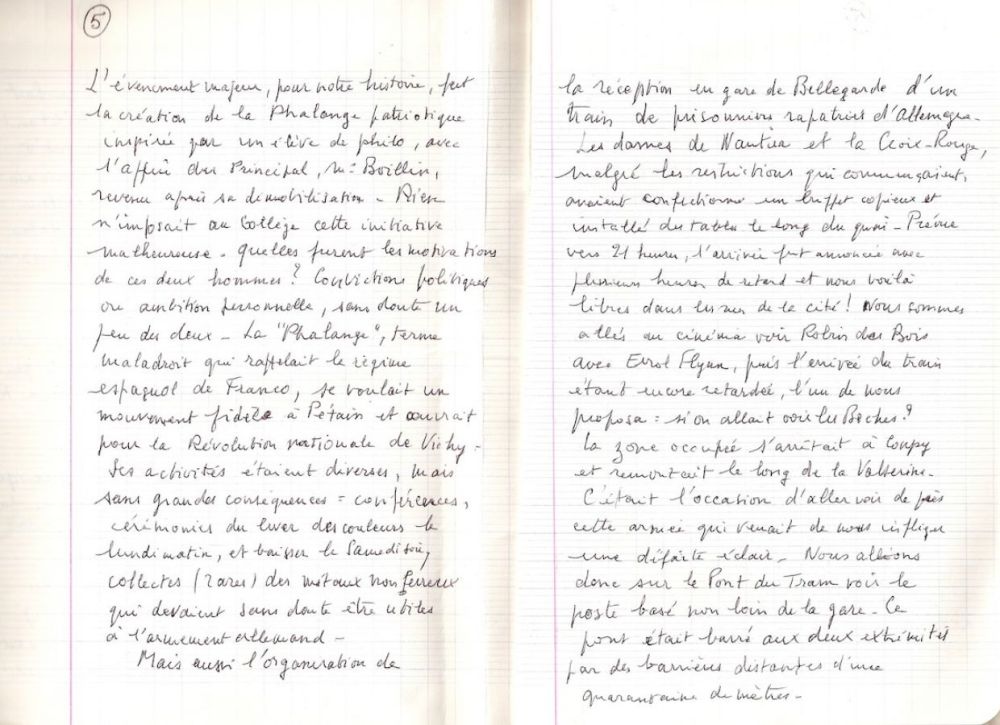 5
L'évènement majeur, pour notre histoire, fut
la création de la Phalange patriotique
inspirée par un élève de philo, avec
l'appui du Principal, Mr Boillin,
revenu après sa démobilisation - Rien
n'imposait au Collège cette initiative
malheureuse. Quelles furent les motivations
de ces deux hommes? Convictions politiques
ou ambition personnelle, sans doute un
peu des deux - La "Phalange", terme
maladroit qui rappelait le régime
espagnol de Franco, se voulait un
mouvement fidèle à Pétain et œuvrait
pour la Révolution nationale de Vichy -
Ses activités étaient diverses, mais
sans grandes conséquences = conférences,
cérémonies du lever des couleurs le
lundi matin, et baisser le Samedi soir,
collectes (rares) des métaux non ferreux
qui devaient sans doute être utiles
à l'armement allemand -
Mais aussi l'organisation de
la réception en gare de Bellegarde d'un
train de prisonniers rapatriés d'Allemagne.
Les dames de Nantua et la Croix-Rouge,
malgré les restrictions qui commençaient,
avaient confectionné un buffet copieux et
installé des tables le long du quai - Prévue
vers 21 heures, l'arrivée fut annoncée avec
plusieurs heures de retard et nous voilà
libres dans les rues de la cité! Nous sommes
allés au cinéma voir Robin des Bois
avec Errol Flynn, puis l'arrivée du train
étant encore retardée, l'un de nous
proposa : si on allait voir les Boches?
La zone occupée s'arrêtait à Coupy
et remontait le long de la Valserine.
C'était l'occasion d'aller voir de près
cette armée qui venait de nous infliger
une défaite éclair - Nous allons
donc sur le Pont du Tram voir le
poste basé non loin de la gare - Ce
pont était barré aux deux extrémités
par des barrières distantes d'une
quarantaine de mètres -